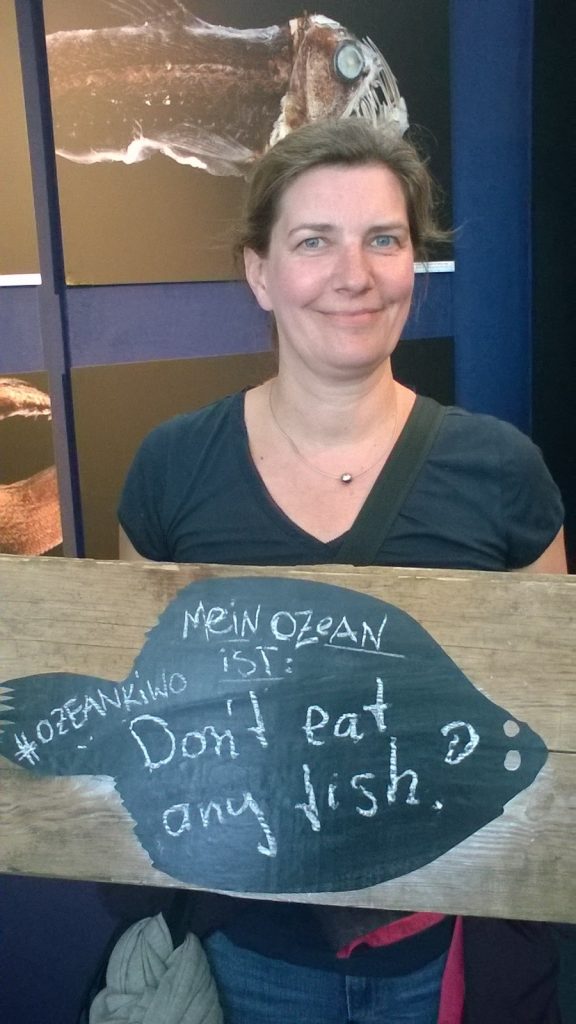 MeiN OZeAN
iST:
#OZEANKiWO
Don't eat
any fish.